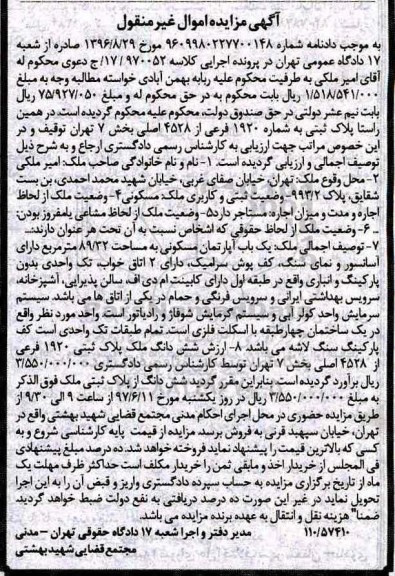 آگهی مزایده اموال غیر منقول
به موجب دادنامه شماره ۹۶۰۹۹۸۰۲۲۷۷۰۰۱۴۸ مورخ ۱۳۹۶/۸/۲۹ صادره از شعبه
۱۷ دادگاه عمومی تهران در پرونده اجرایی کلاسه ۹۷۰۰۵۲/ ۱۷/ج دعوی محکوم له
آقای امیر ملکی به طرفیت محکوم علیه ربابه بهمن آبادی خواسته مطالبه وجه به مبلغ
۱/۵۱۸/۵۴۱/۰۰۰ ریال بابت محکوم به در حق محکوم له و مبلغ ۷۵/۹۲۷/۰۵۰ ریال
بابت نیم عشر دولتی در حق صندوق دولت، محکوم علیه محکوم گردیده است. در همین
راستا پلاک ثبتی به شماره ۱۹۲۰ فرعی از ۴۵۲۸ اصلی بخش ۷ تهران توقیف و در
این خصوص مراتب جهت ارزیابی به کارشناس رسمی دادگستری ارجاع و به شرح ذیل
توصیف اجمالی و ارزیابی گردیده است. ۱- نام و نام خانوادگی صاحب ملک: امیر ملکی
۲- محل وقوع ملک: تهران، خیابان صفای غربی، خیابان شهید محمد احمدی، بن بست
شقایق، پلاک ۹۹۳/۲- وضعیت ثبتی و کاربری ملک: مسکونی ۴- وضعیت ملک از لحاظ
اجاره و مدت و میزان اجاره: مستاجر دارد ۵- وضعیت ملک از لحاظ مشاعی یامفروز بودن:
.. ۶- وضعیت ملک از لحاظ حقوقی که اشخاص نسبت به آن تحت هر عنوان دارند:...
۷- توصیف اجمالی ملک: یک باب آپارتمان مسکونی به مساحت ۸۹/۳۲ مترمربع دارای
آسانسور و نمای سنگ، کف پوش سرامیک، دارای ۲ اتاق خواب، تک واحدی بدون
پارکینگ و انباری واقع در طبقه اول دارای کابینت ام دی اف، سالن پذیرایی، آشپزخانه،
سرویس بهداشتی ایرانی و سرویس فرنگی و حمام در یکی از اتاق ها می باشد. سیستم
سرمایش واحد کولر آبی و سیستم گرمایش شوفاژ و رادیاتور است. واحد مورد نظر واقع
در یک ساختمان چهارطبقه با اسکلت فلزی است. تمام طبقات تک واحدی است کف
پارکینگ سنگ لاشه می باشد. ۸- ارزش شش دانگ ملک پلاک ثبتی ۱۹۲۰ فرعی
از ۴۵۲۸ اصلی بخش ۷ تهران توسط کارشناس رسمی دادگستری ۳/۵۵۰/۰۰۰/۰۰۰
ریال برآورد گردیده است. بنابراین مقرر گردید شش دانگ از پلاک ثبتی ملک فوق الذکر
به مبلغ ۳/۵۵۰/۰۰۰/۰۰۰ ریال در روز یکشنبه مورخ ۹۷/۶/۱۱ از ساعت ۹ الی ۹/۳۰ از
طریق مزایده حضوری در محل اجرای احکام مدنی مجتمع قضایی شهید بهشتی واقع در
تهران، خیابان سپهبد قرنی به فروش برسد. مزایده از قیمت پایه کارشناسی شروع و به
کسی که بالاترین قیمت را پیشنهاد نماید فروخته خواهد شد. ده درصد مبلغ پیشنهادی
فی المجلس از خریدار اخذ و مابقی ثمن را خریدار مکلف است حداکثر ظرف مهلت یک
ماه از تاریخ برگزاری مزایده به حساب سپرده دادگستری واریز و قبض آن را به این اجرا
تحویل نماید در غیر این صورت ده درصد دریافتی به نفع دولت ضبط خواهد گردید.
ضمنا" هزینه نقل و انتقال به عهده برنده مزایده می باشد.
۱۱۰/۵۷۴۱۰ مدیر دفتر و اجرا شعبه ۱۷ دادگاه حقوقی تهران - مدنی
مجتمع قضایی شهید بهشتی